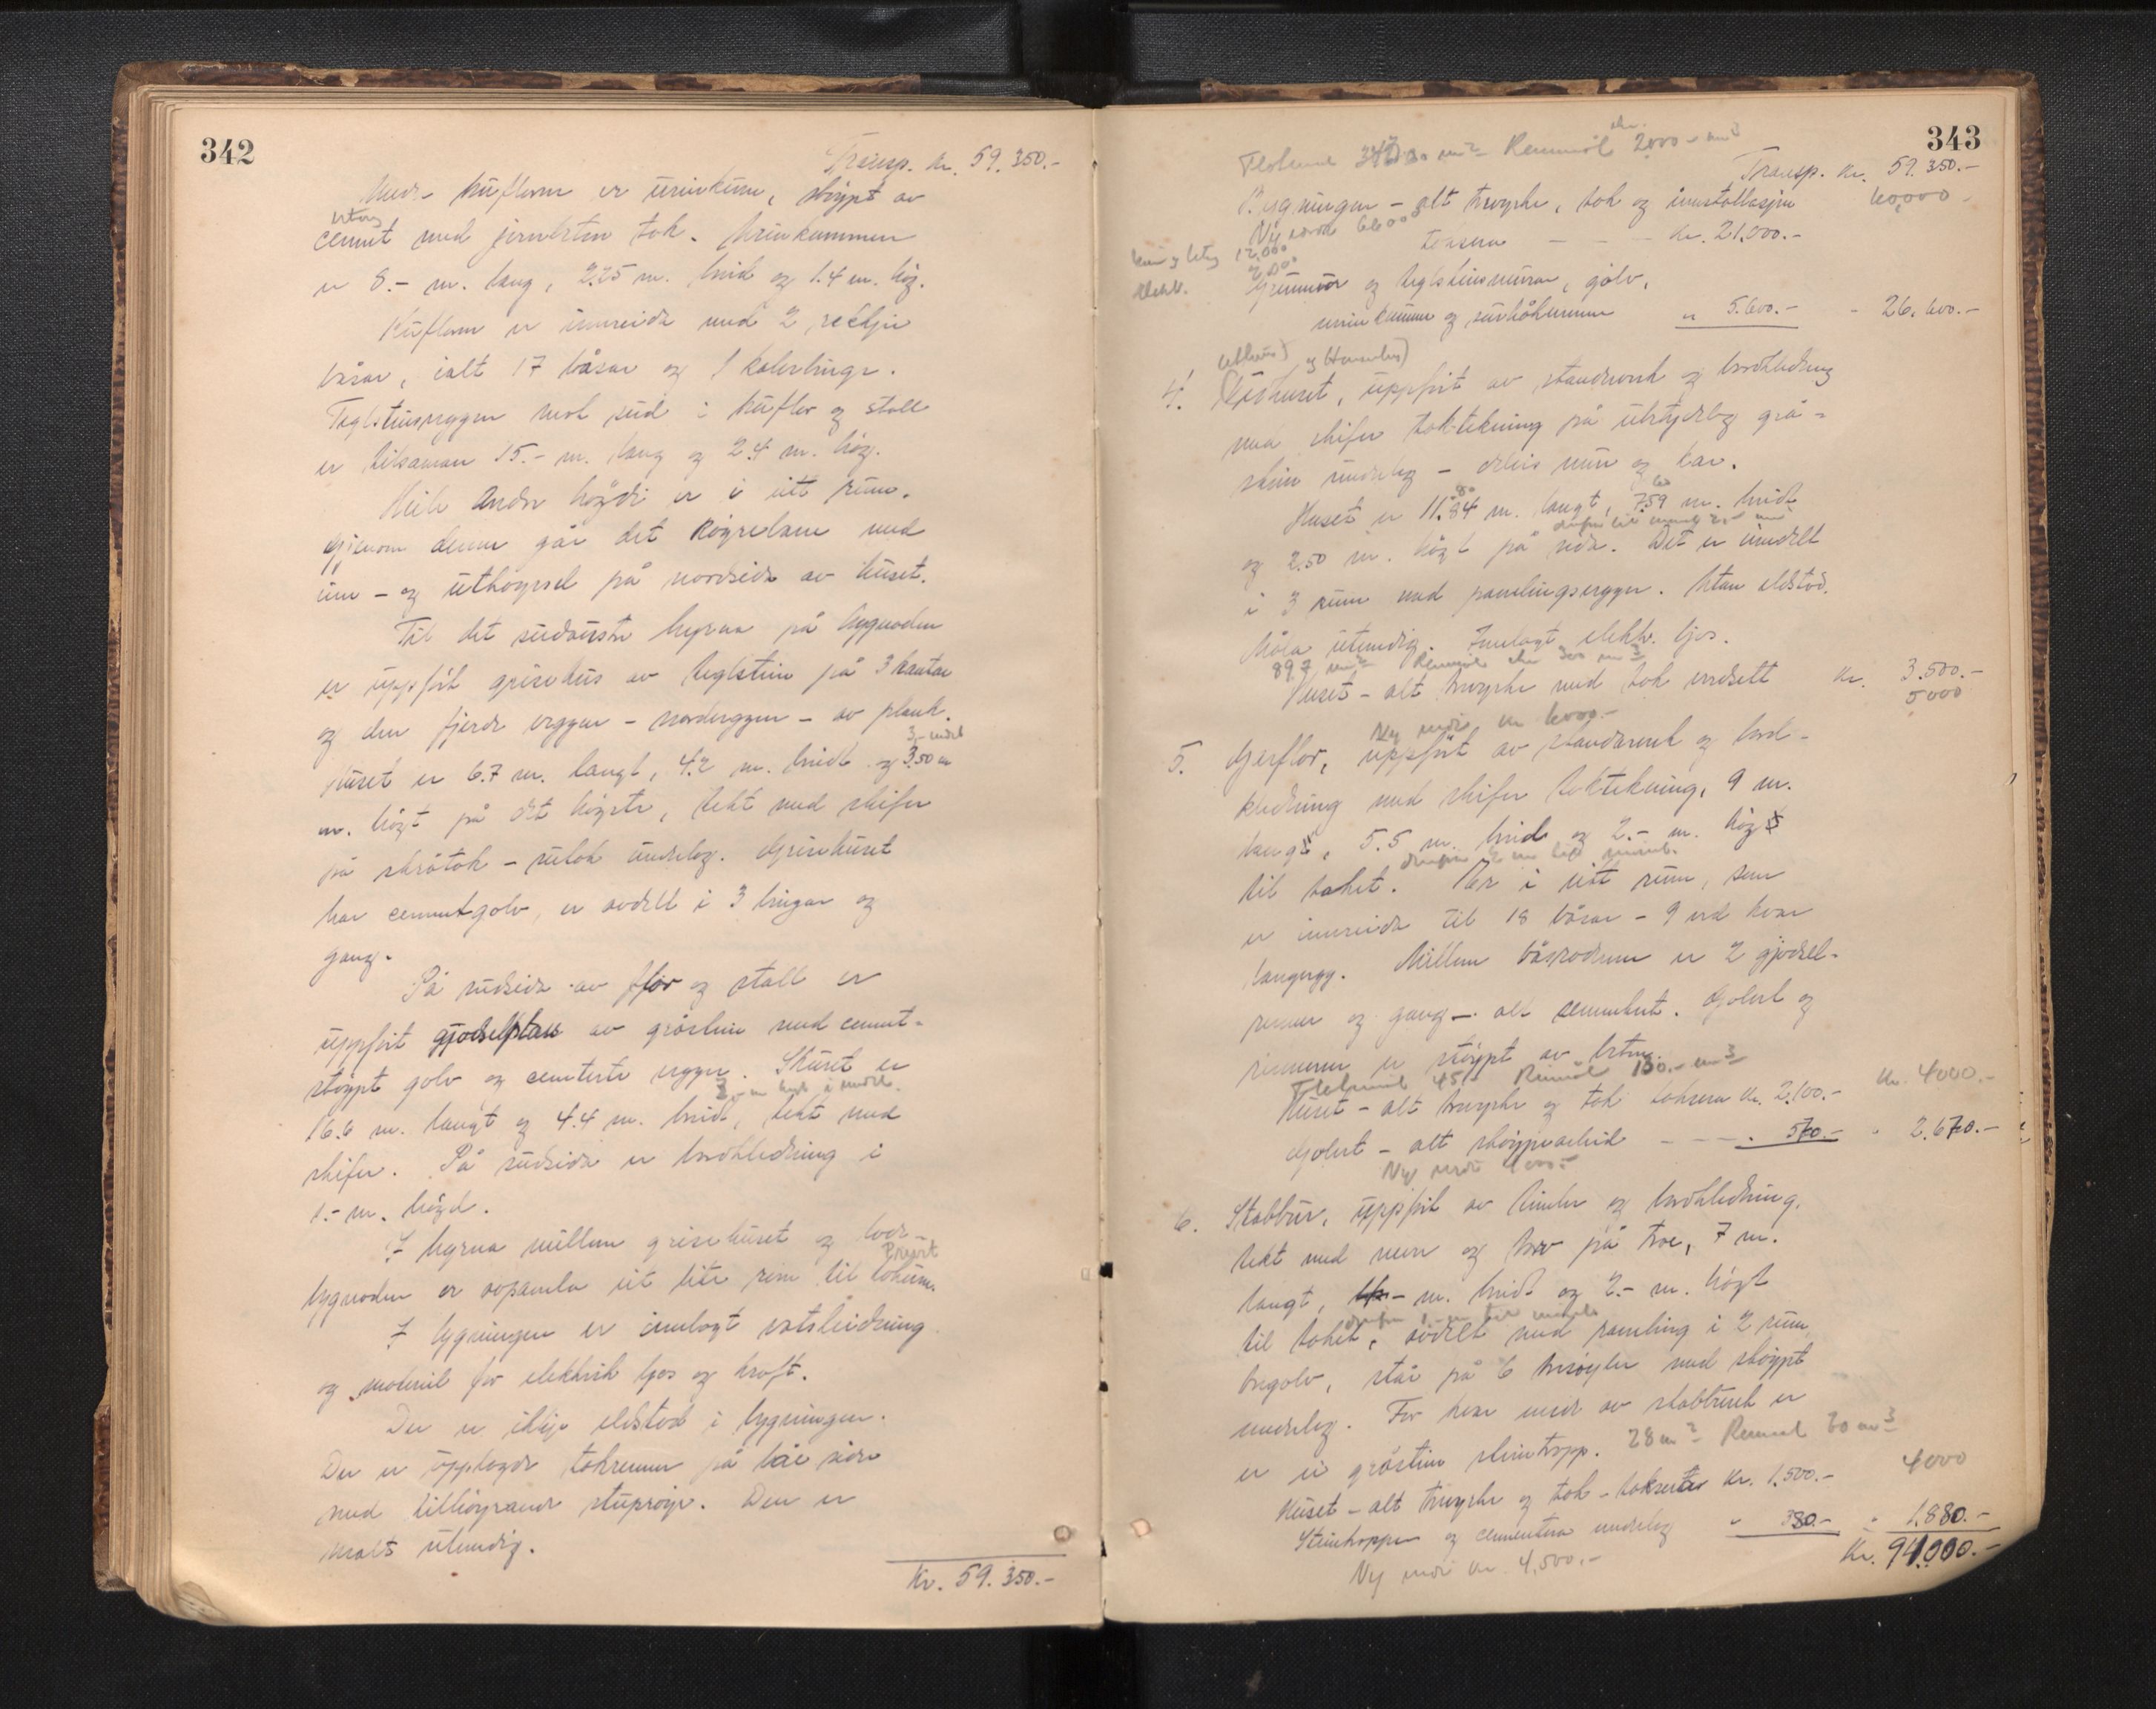 342
Transp. kr. 59.350.-
Under kuflorn er urinkum, støypt av
betong
cement med jernbeton tak. Urinkummen
er 8.- m. lang, 2.25 m. breid og 1.4 m. høg.
Kuflorn er innreida med 2 rekkjir
båsar, ialt 17 båsar og 1 kalvebinge.
Teglsteinsveggen mot sud i kuflor og stall
er tilsaman 15.- m. lang og 2.4 m. høg.
Heile andre høgdi er i eitt rum.
Gjenom denne går det køyrelam med
inn- og utkøyrsel på nordsida av huset.
Til det sudaustre hyrna på bygnaden
er uppført grisehus av teglstein på 3 kantar
og den fjerde veggen - nordveggen - av plank.
3,- midel
Huset er 6.7 m. langt, 4.2 m. breidt og 3.50 m
m. høgt på det høgste, tekt med skifer
på skråtak - sutak underlag. Grisehuset
har cementgolv, er avdelt i 3 bingar og
gang.
På sudsida av flor og stall er
uppført gjødselstau av gråstein med cement-
støypt golv og cementerte vegger. Skuret er
3,- m høgt i midel.
16.6 m. langt og 4.4 m. breidt, tekt med
skifer. På sudsida er bordkledning i
1.- m. høgd.
I hyrna millom grisehuset og hovd-
Privet
bygnaden er avpanela eit lite rom til lokum.
I bygningen er innlagt vatsleidning
og materiel for elektrisk ljos og kraft.
Der er ikkje eldstad i bygningen.
Der er upplagde takrenner på båe sider
med tilhøyrande stuprøyr. Den er
malt utvendig.
Kr. 59.350.-
343
2000 - m3
Transp. kr. 59.350.-
Bygningen - alt treverke, tak og innstallasjon
60,000
Ny verde 66000
taksera - - - kr. 21.000.-
kum og betong 12,000
2,000
elektr.
Grunnmur og teglsteinsmurar, golv,
urinkumme og surhåkumme " 5.600.- - 26.600.-
4. Eldhuset, uppført av standverk og bordkledning
med skifer taktekning på utstyrleg grå-
stein underlag - delvis mur og kav.
Huset er 11.84 m. langt, 7.59 m. breidt
og 2.50 m. høgt på sida. Det er inndelt
i 3 rum med panelingsveggir. Utan eldstad.
Måla utvendig. Innlagt elektr. ljos.
89.7 m2 Rummål 300 m3
Huset - alt treverke med tak verdsett kr. 3.500.-
5000
Ny verdi kr 6000.-
5. Gjerflor, uppført av standarverk og bord-
kledning med skifer taktekning, 9 m.
lang, 5.5 m. breid og 2.- m. høg
til taket. Er i eitt rum, som
er innreida til 18 båsar - 9 ved kvar
langvegg. Millom båsradene er 2 gjødsel-
renner og gang - alt cementert. Golvet og
rennerne er støypt av beton.
Rummål 130.- m3
kr. 4000.-
Huset - alt treverke og tak taksera kr. 2.100.-
Golvet - alt støypearbeid - - - " 570.- " 2.670.-
Ny verdi
6. Stabbur, uppført av timber og bordkledning,
tekt med never og torv på troe, 7 m.
langt, m. breidt og 2.- m. høgt
til taket, avdelt med paneling i 2 rum
tregolv, står på 6 tresøyler med støypt
underlag. For kvar ende av stabburet er
er ei gråstein steintropp. 28 m2 Rummål 70 m3
4000
Huset - alt treverke og tak - taksera kr. 1.500.-
Steintroppen og cementera underlag " 380.- " 1.880.-
Kr. 94.000.-
Ny verdi kr. 4,500.-